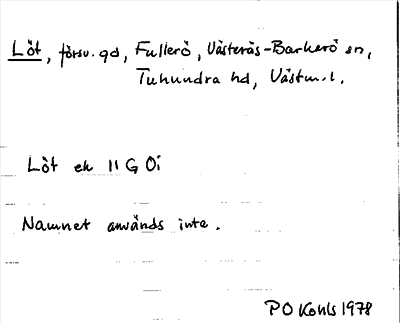 Löt, försv. gd, Fullerö, Västerås-Barkarö sn,
Tuhundra hd, Västm.l.
Löt ek 11 G 0i
Namnet används inte.
P O Kohls 1978